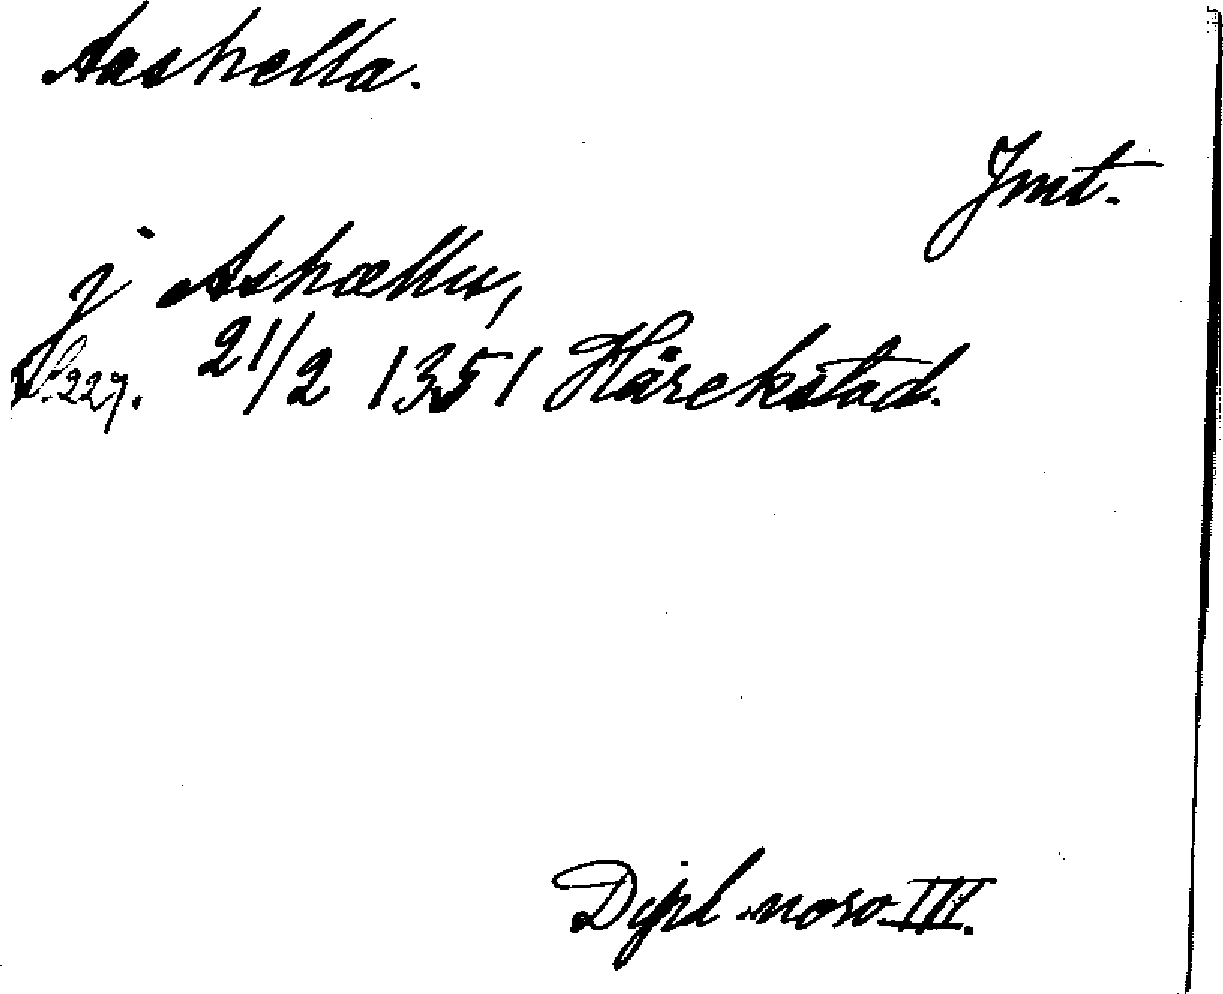 Askella.
Jmt.
j Askællu,
S. 227. 21/2 1351 Härekstad.
Dipl. norv. III.